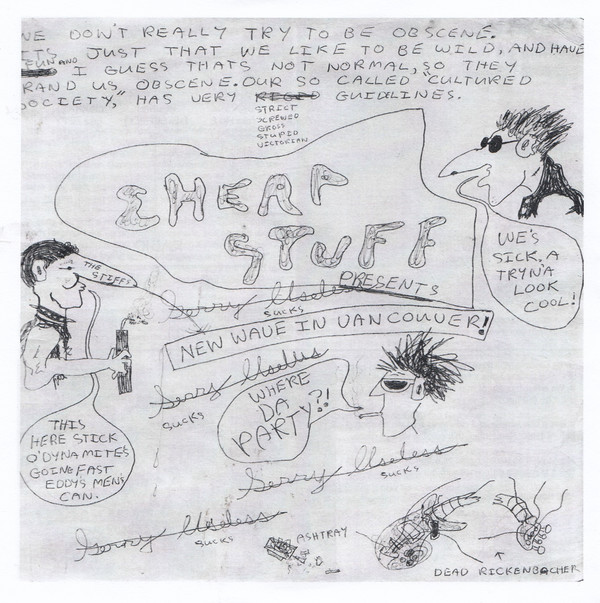 WE DON'T REALLY TRY TO BE OBSCENE.
ITS JUST THAT WE LIKE TO BE WILD, AND HAVE
FUN AND I GUESS THATS NOT NORMAL, SO THEY
RAND US "OBSCENE. OUR SO CALLED "CULTURED
SOCIETY," HAS VERY RIGID GUIDELINES.
STRICT
SCREWED
GROSS
STUPID
VICTORIAN
CHEAP
STUFF
PRESENTS
WE'S
SICK, A
TRYN'A
LOOK
COOL!
THE STIFFS
Gerry Useless
SUCKS
NEW WAVE IN VANCOUVER!
Gerry Useless
SUCKS
WHERE
DA
PARTY?!
THIS
HERE STICK
O'DYNAMITES
GOING FAST
EDDY'S MENS
CAN.
Gerry Useless
SUCKS
Gerry Useless
SUCKS
ASHTRAY
DEAD RICKENBACHER